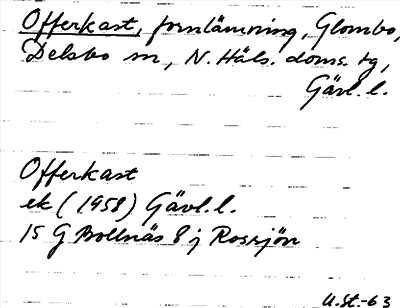 Offerkast, fornlämning, Glombo,
Delsbo sn, N. Häls. doms. tg,
Gävl. l.
Offerkast
ek (1958) Gävl. l.
15 G Bollnäs 8 j Rossjön
U.St.-63